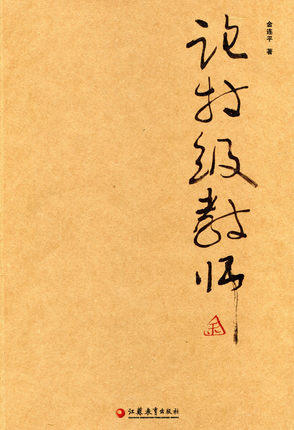 金连平 著
论特级教师
金
江苏教育出版社